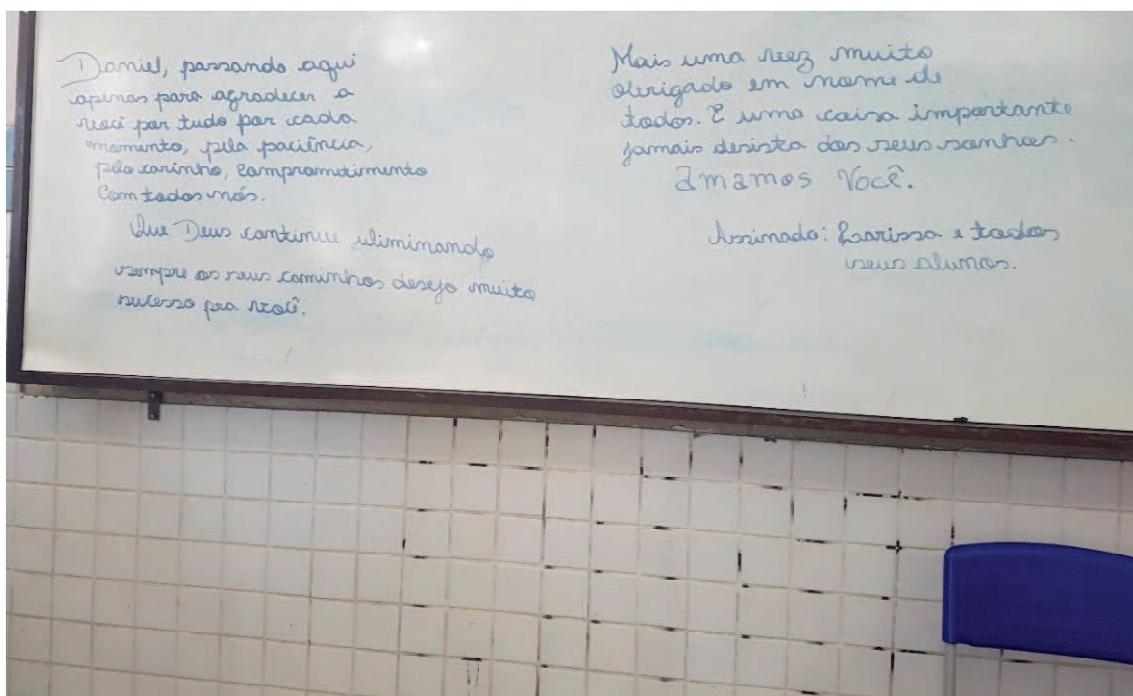 Daniel, passando aqui
apenas para agradecer a
você por tudo por cada
momento, pela paciência,
pelo carinho, comprometimento
com todos nós.
Que Deus continue iliminando
sempre os seus caminhos desejo muito
sucesso pra você.
Mais uma vez muito
obrigado em nome de
todos. E uma coisa importante
jamais desista dos seus sonhos.
Amamos Você.
Assinado: Larissa e todos
seus alunos.